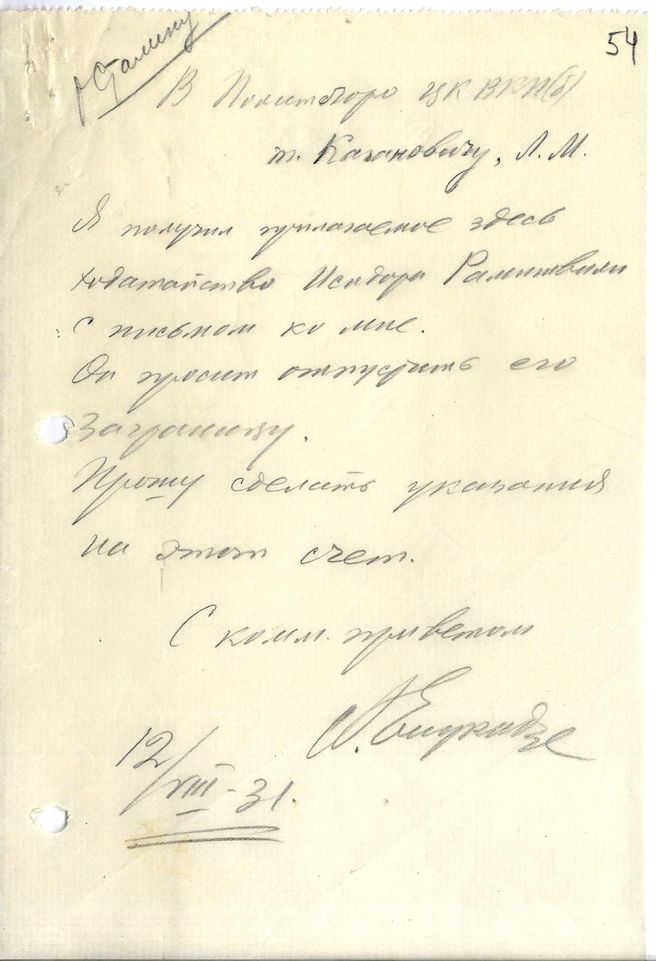 т Сталину
54
В Политбюро ЦК ВКП(б)
т. Кагановичу, Л. М.
Я получил прилагаемое здесь
ходатайство Исидора Рамишвили
с письмом ко мне.
Он просит отпустить его
заграницу.
Прошу сделать указания
на этот счет.
С комм. приветом
А. Енукидзе
12/VIII-31.